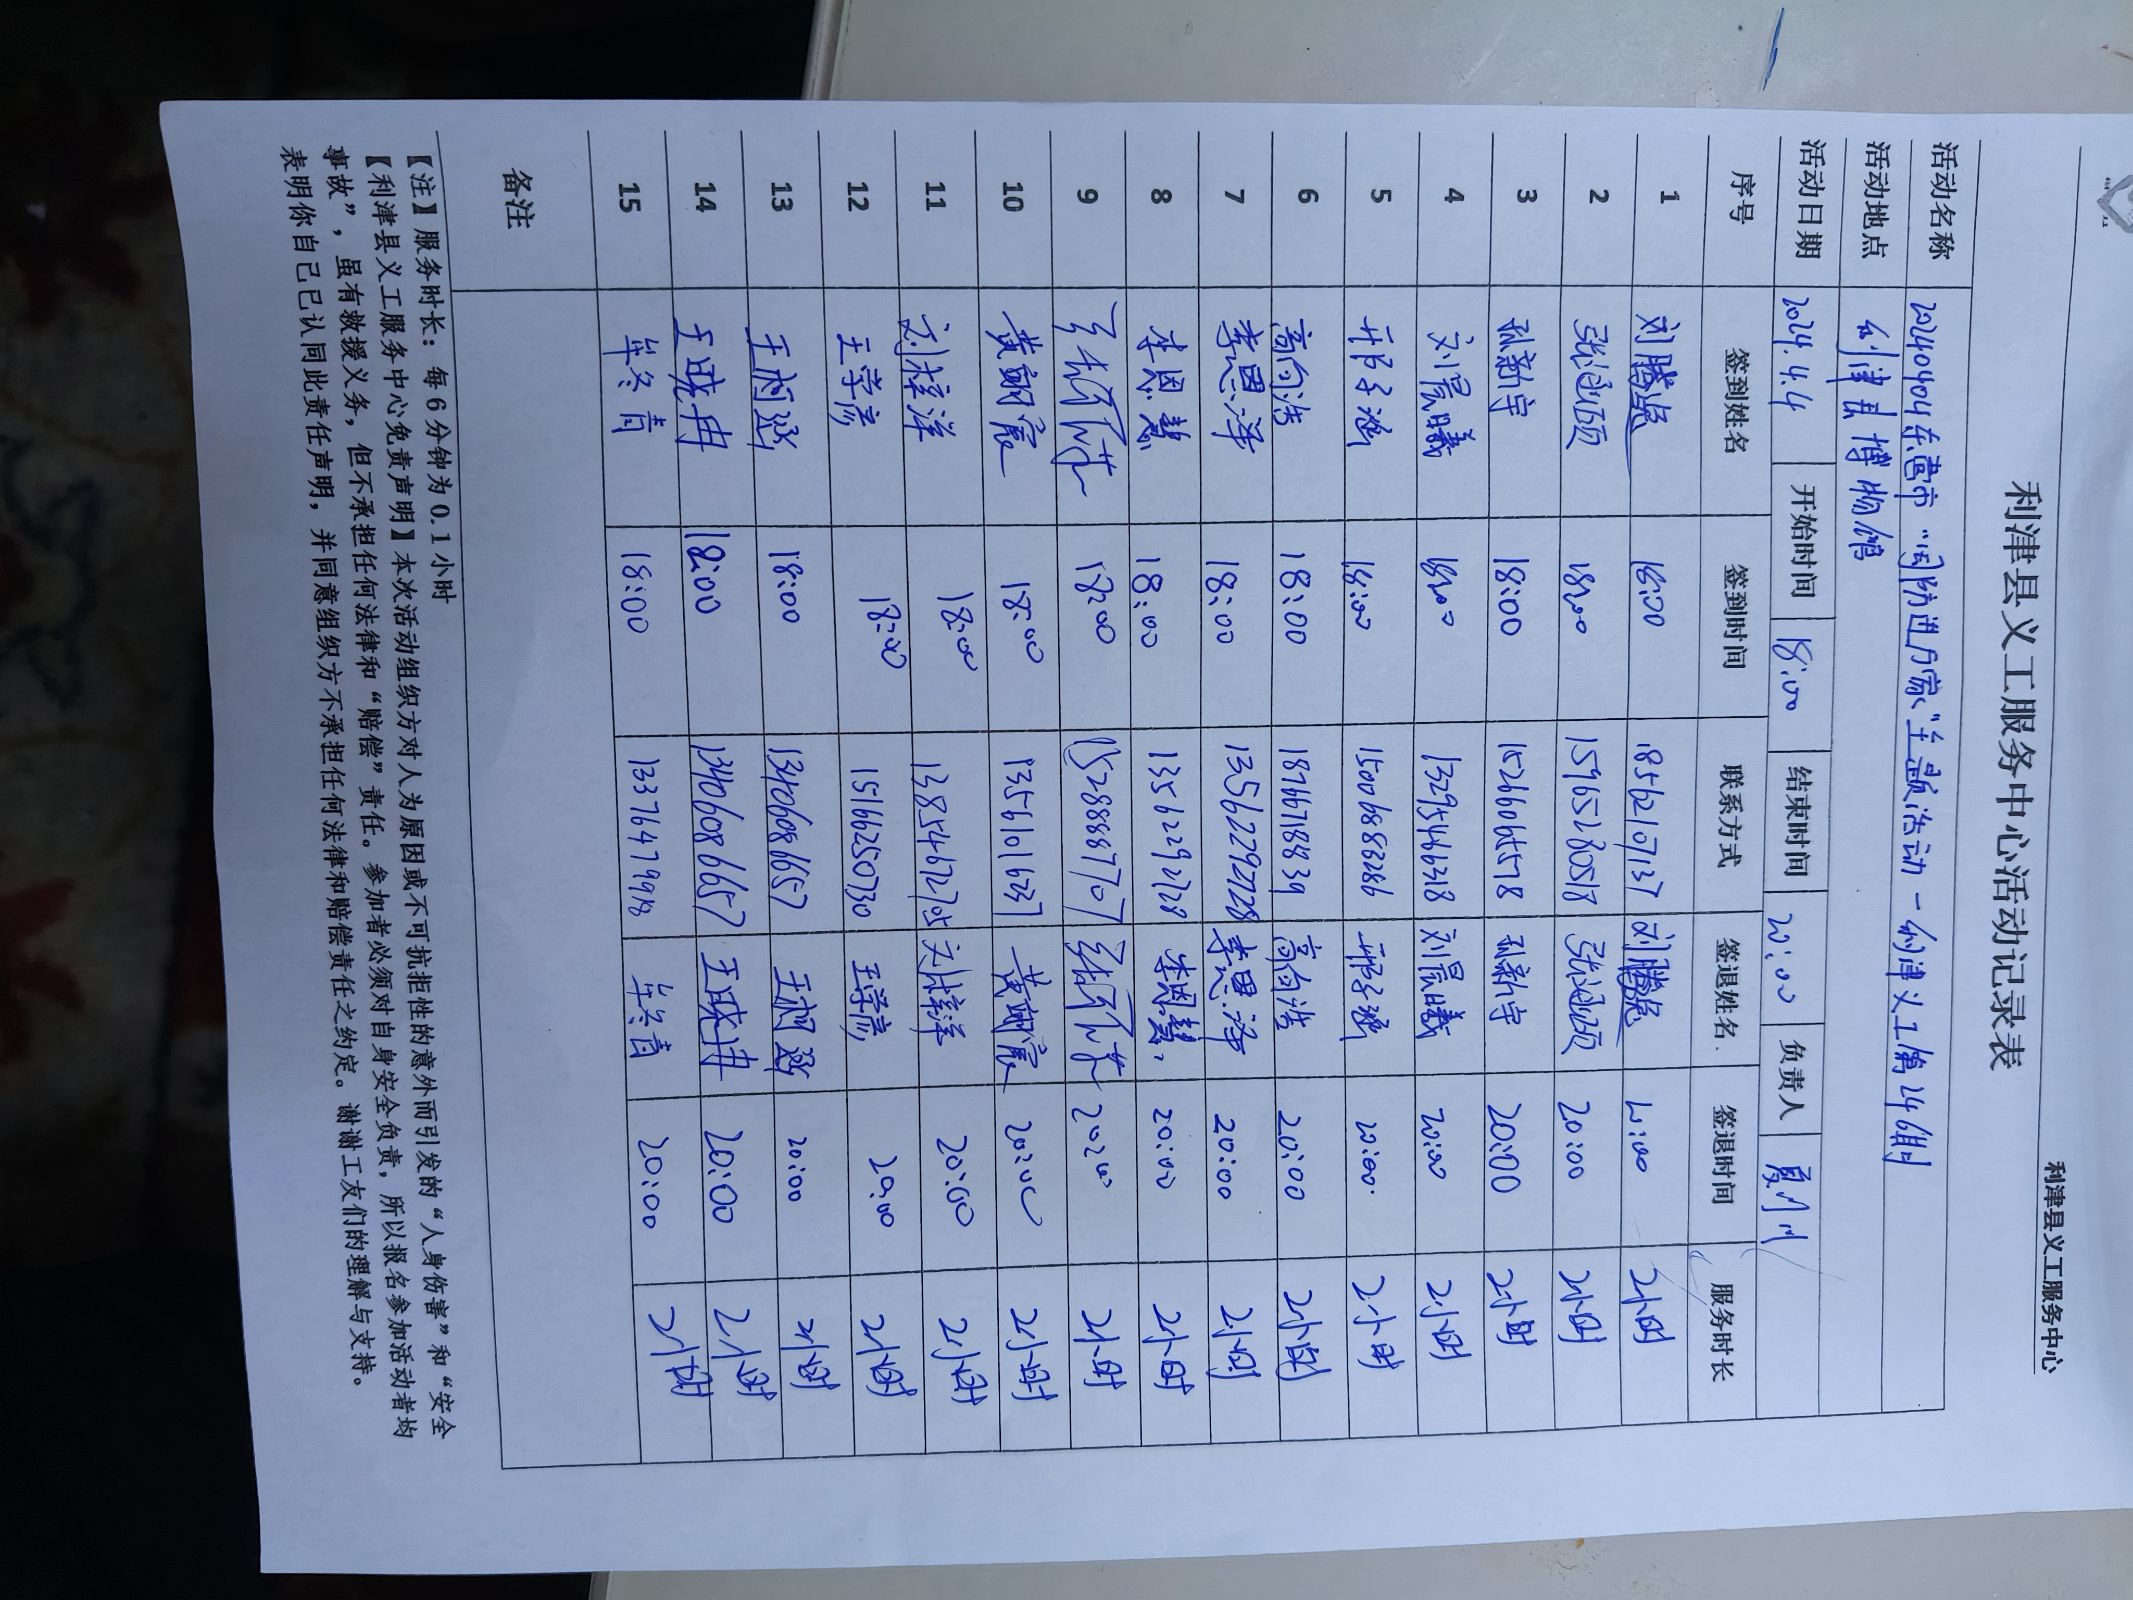 利津县义工服务中心
利津县义工服务中心活动记录表
活动名称 20240404东营市“国防进万家”主题活动一利津义工第246期
活动地点 利津县博物馆
活动日期 2024.4.4 开始时间 18:00 结束时间 20:00 负责人
序号 签到姓名 签到时间 联系方式 签退姓名 签退时间 服务时长
1 刘腾 18:00 18562107137 刘腾 20:00 2小时
2 张 18:00 15965280518 张 20:00 2小时
3 新宇 18:00 15266065578 新宇 20:00 2小时
4 刘晨曦 18:00 13295466318 刘晨曦 20:00 2小时
5 子涵 18:00 15006883286 子涵 20:00 2小时
6 高向浩 18:00 18766718839 高向浩 20:00 2小时
7 李思泽 18:00 13562292728 李思泽 20:00 2小时
8 李恩慧 18:00 13562292728 李恩慧 20:00 2小时
9 18:00 15288887707 20:00 2小时
10 黄翊宸 18:00 13561016237 黄翊宸 20:00 2小时
11 刘梓洋 18:00 刘梓洋 20:00 2小时
12 王学彦 18:00 15166250730 王学彦 20:00 2小时
13 王 涵 18:00 13406086657 王 涵 20:00 2小时
14 王晓冉 18:00 13406086657 王晓冉 20:00 2小时
15 牟冬青 18:00 13376479918 牟冬青 20:00 2小时
备注
【注】服务时长：每6分钟为0.1小时
【利津县义工服务中心免责声明】本次活动组织方对人为原因或不可抗拒性的意外而引发的“人身伤害”和“安全
事故”，虽有救援义务，但不承担任何法律和“赔偿”责任。参加者必须对自身安全负责，所以报名参加活动者均
表明你自己已认同此责任声明，并同意组织方不承担任何法律和赔偿责任之约定。谢谢工友们的理解与支持。